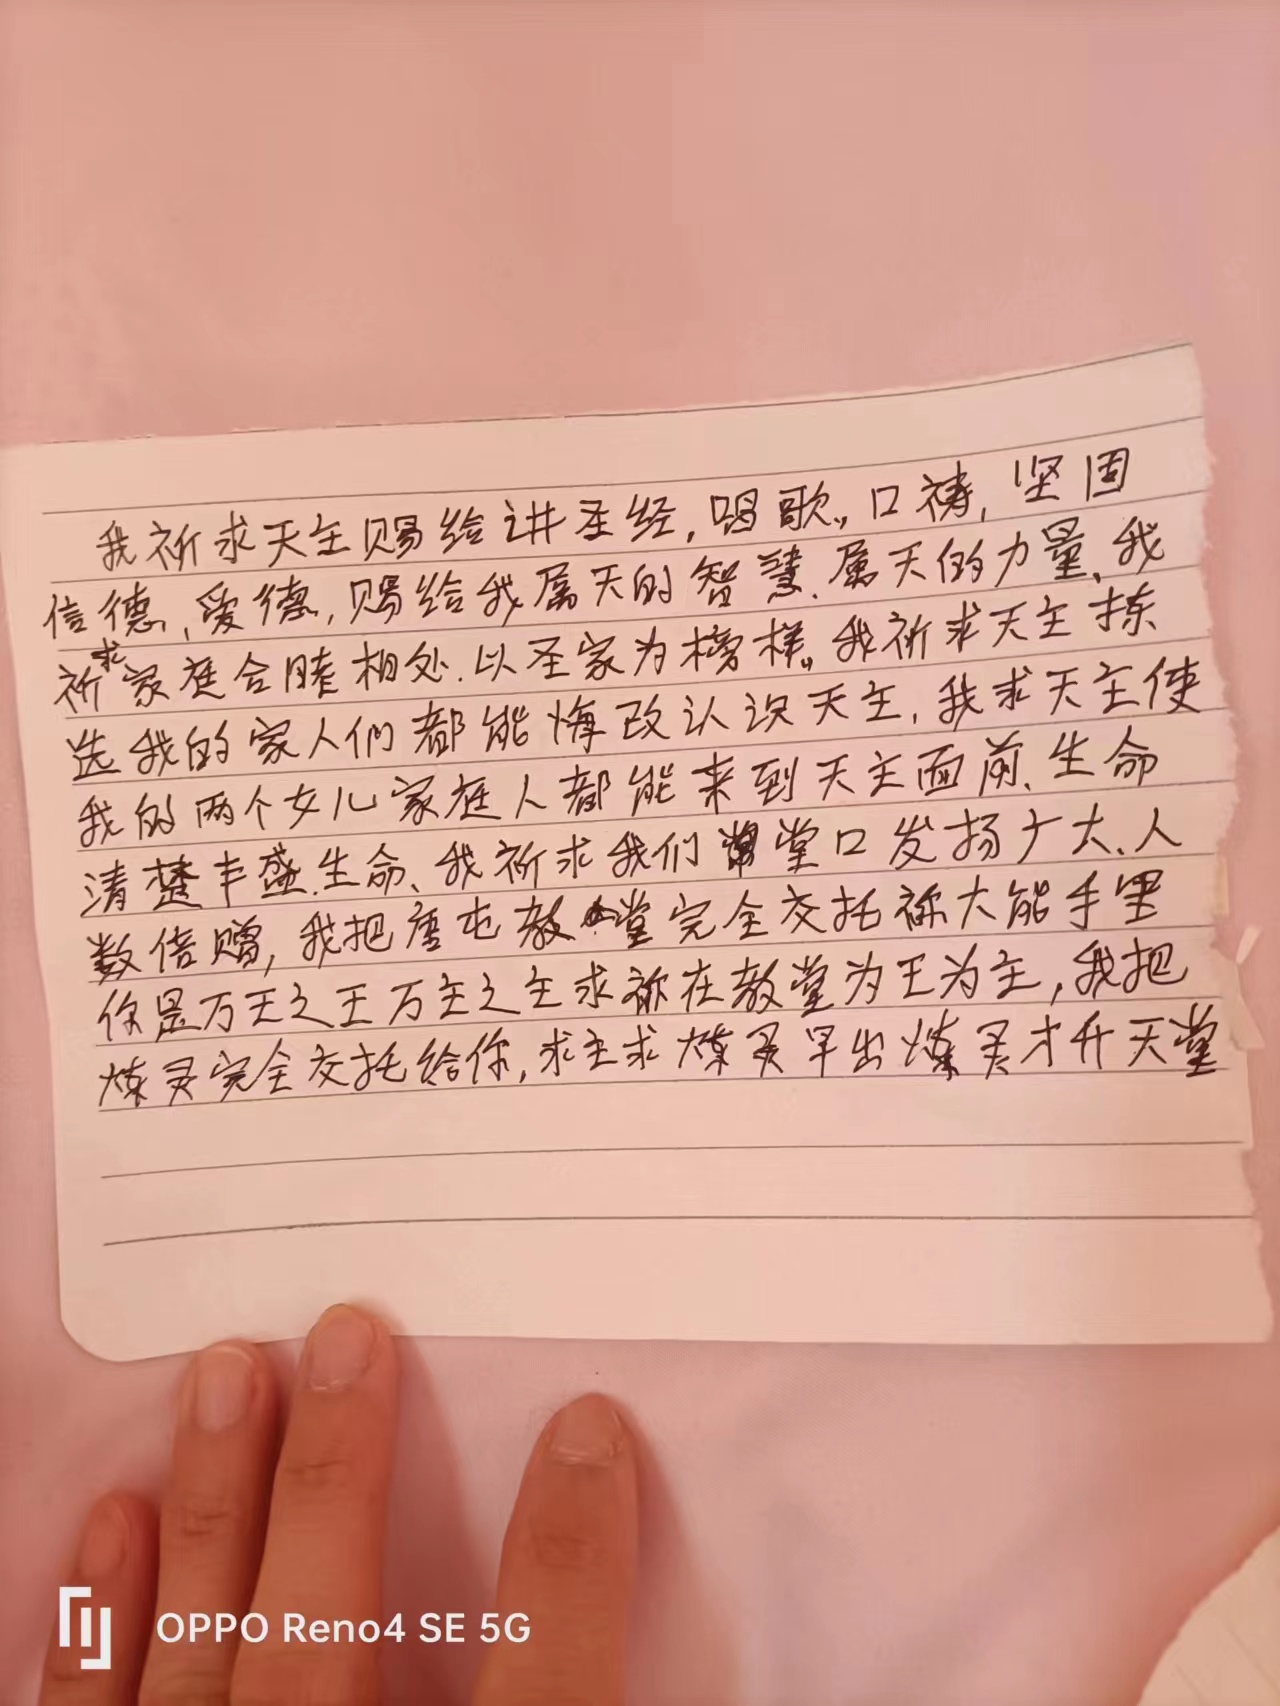 我祈求天主赐给讲圣经，唱歌。口祷，坚固
信德、爱德，赐给我属天的智慧.属天的力量、我
祈求家庭合睦相处.以圣家为榜样。我祈求天主拣
选我的家人们都能悔改认识天主，我求天主使
我的两个女儿家庭人都能来到天主面前、生命
清楚丰盛.生命、我祈求我们堂口发扬广大、人
数倍赠，我把唐屯教堂完全交托祢大能手里
你是万王之王万主之主求祢在教堂为王为主，我把
炼灵完全交托给你，求主求炼灵早出炼灵才升天堂
OPPO Reno4 SE 5G